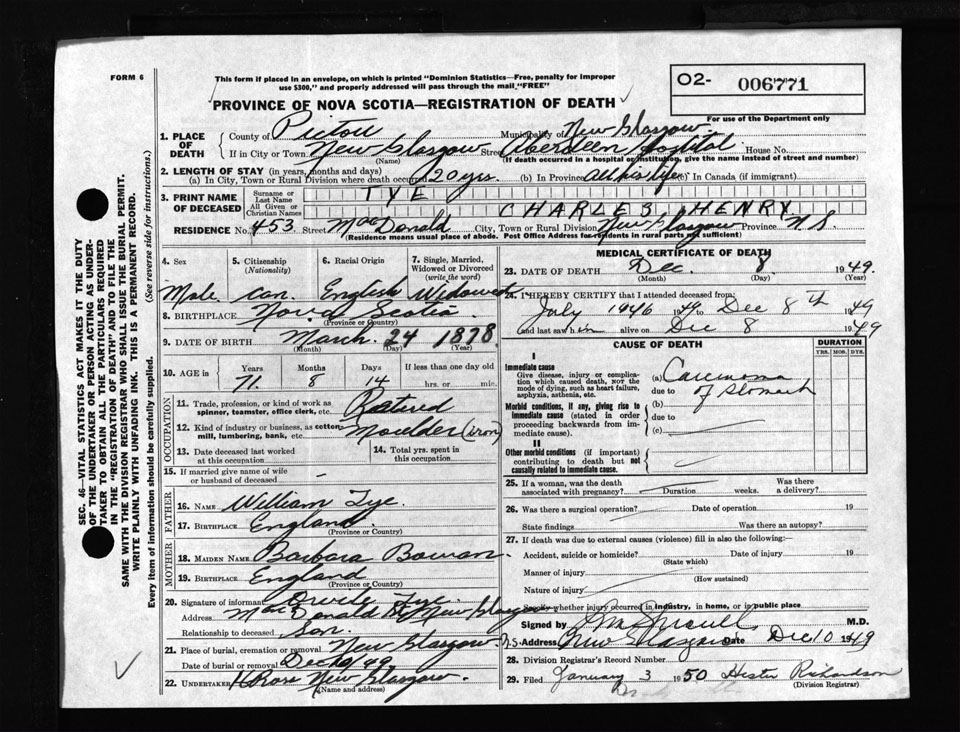 FORM 6
This form if placed in an envelope, on which is printed "Dominion Statistics—Free, penalty for improper
use $300," and properly addressed will pass through the mail "FREE"
PROVINCE OF NOVA SCOTIA—REGISTRATION OF DEATH
O2- 006771
For use of the Department only
1. PLACE OF DEATH
County of Pictou Municipality of New Glasgow
If in City or Town New Glasgow Street Aberdeen Hospital House No.
(Name) (If death occurred in a hospital or institution, give the name instead of street and number)
2. LENGTH OF STAY (in years, months and days)
(a) In City, Town or Rural Division where death occurred 20 yrs. (b) In Province all his life (c) In Canada (if immigrant)
3. PRINT NAME OF DECEASED
Surname or Last Name TYE
All Given or Christian Names CHARLES HENRY
RESIDENCE No. 453 Street MacDonald City, Town or Rural Division New Glasgow Province N.S
(Residence means usual place of abode. Post Office Address for residents in rural parts not sufficient)
4. Sex 5. Citizenship (Nationality) 6. Racial Origin 7. Single, Married, Widowed or Divorced (write the word)
Male Can. English Widowed
8. BIRTHPLACE Nova Scotia
(Province or Country)
9. DATE OF BIRTH March 24 1878
(Month) (Day) (Year)
10. AGE in Years Months Days If less than one day
71 8 14 hrs. or min.
OCCUPATION
11. Trade, profession or kind of work as spinner, teamster, office clerk, etc. Retired
12. Kind of industry or business, as cotton mill, lumbering, bank, etc. Moulder (iron)
13. Date deceased last worked at this occupation 14. Total yrs. spent in this occupation
15. If married give name of wife or husband of deceased
FATHER
16. NAME William Tye
17. BIRTHPLACE England
(Province or Country)
MOTHER
18. MAIDEN NAME Barbara Bowan
19. BIRTHPLACE England
(Province or Country)
20. Signature of informant Tye
Address MacDonald St New Glasgow
Relationship to deceased Son.
21. Place of burial, cremation or removal New Glasgow
Date of burial or removal Dec 10/49
22. UNDERTAKER Ross New Glasgow.
(Name and address)
MEDICAL CERTIFICATE OF DEATH
23. DATE OF DEATH Dec. 8 1949.
(Month) (Day) (Year)
24. I HEREBY CERTIFY that I attended deceased from:
July 1946 to Dec 8th 1949
and last saw him alive on Dec 8 1949
CAUSE OF DEATH DURATION
YRS. MOS. DYS.
I
Immediate cause
Give disease, injury or complication which caused death, NOT the mode of dying, such as heart failure, asphyxia, asthenia, etc.
(a) Carcinoma
due to of Stomach
Morbid conditions, if any, giving rise to immediate cause (stated in order proceeding backwards from immediate cause).
(b)
due to
(c)
II
Other morbid conditions (if important) contributing to death but not causally related to immediate cause.
25. If a woman, was the death associated with pregnancy? Duration weeks. Was there a delivery?
26. Was there a surgical operation? Date of operation 19
State findings Was there an autopsy?
27. If death was due to external causes (violence) fill in also the following:
Accident, suicide or homicide? Date of injury 19
(State which)
Manner of injury
(How sustained)
Nature of injury
Specify whether injury occurred in industry, in home, or in public place
Signed by M.D.
N.S. Address New Glasgow Date Dec 10 1949
28. Division Registrar's Record Number
29. Filed January 3 1950 Hester Richardson
(Division Registrar)
SEC. 46—VITAL STATISTICS ACT MAKES IT THE DUTY
OF THE UNDERTAKER OR PERSON ACTING AS UNDER-
TAKER TO OBTAIN ALL THE PARTICULARS REQUIRED
IN THE "REGISTRATION OF DEATH" AND TO FILE THE
SAME WITH THE DIVISION REGISTRAR WHO SHALL ISSUE THE BURIAL PERMIT.
WRITE PLAINLY WITH UNFADING INK. THIS IS A PERMANENT RECORD.
Every item of information should be carefully supplied. (See reverse side for instructions.)